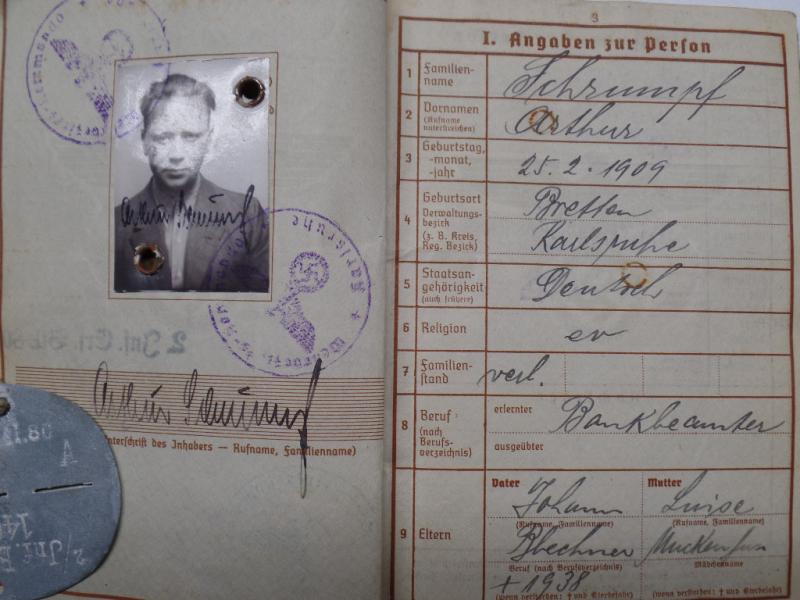 Karlsruhe
Arthur Schrumpf
Arthur Schrumpf
Unterschrift des Inhabers — Rufname, Familienname)
3
I. Angaben zur Person
1 Familien-
name
Schrumpf
2 Vornamen
(Rufname
unterstreichen)
Arthur
3 Geburtstag,
-monat,
-jahr
25.2.1909
4 Geburtsort
Verwaltungs-
bezirk
(z. B. Kreis,
Reg. Bezirk)
Bretten
Karlsruhe
5 Staatsan-
gehörigkeit
(auch frühere)
Deutsch
6 Religion
ev
7 Familien-
stand
verl.
8 Beruf:
(nach
Berufs-
verzeichnis)
erlernter Bankbeamter
ausgeübter
9 Eltern
Vater Johann
(Rufname, Familienname)
Blechner
Beruf (nach Berufsverzeichnis)
+ 1938
(wenn verstorben: † und Sterbejahr)
Mutter Luise
(Rufname, Familienname)
Mädchenname
(wenn verstorben: † und Sterbejahr)
A